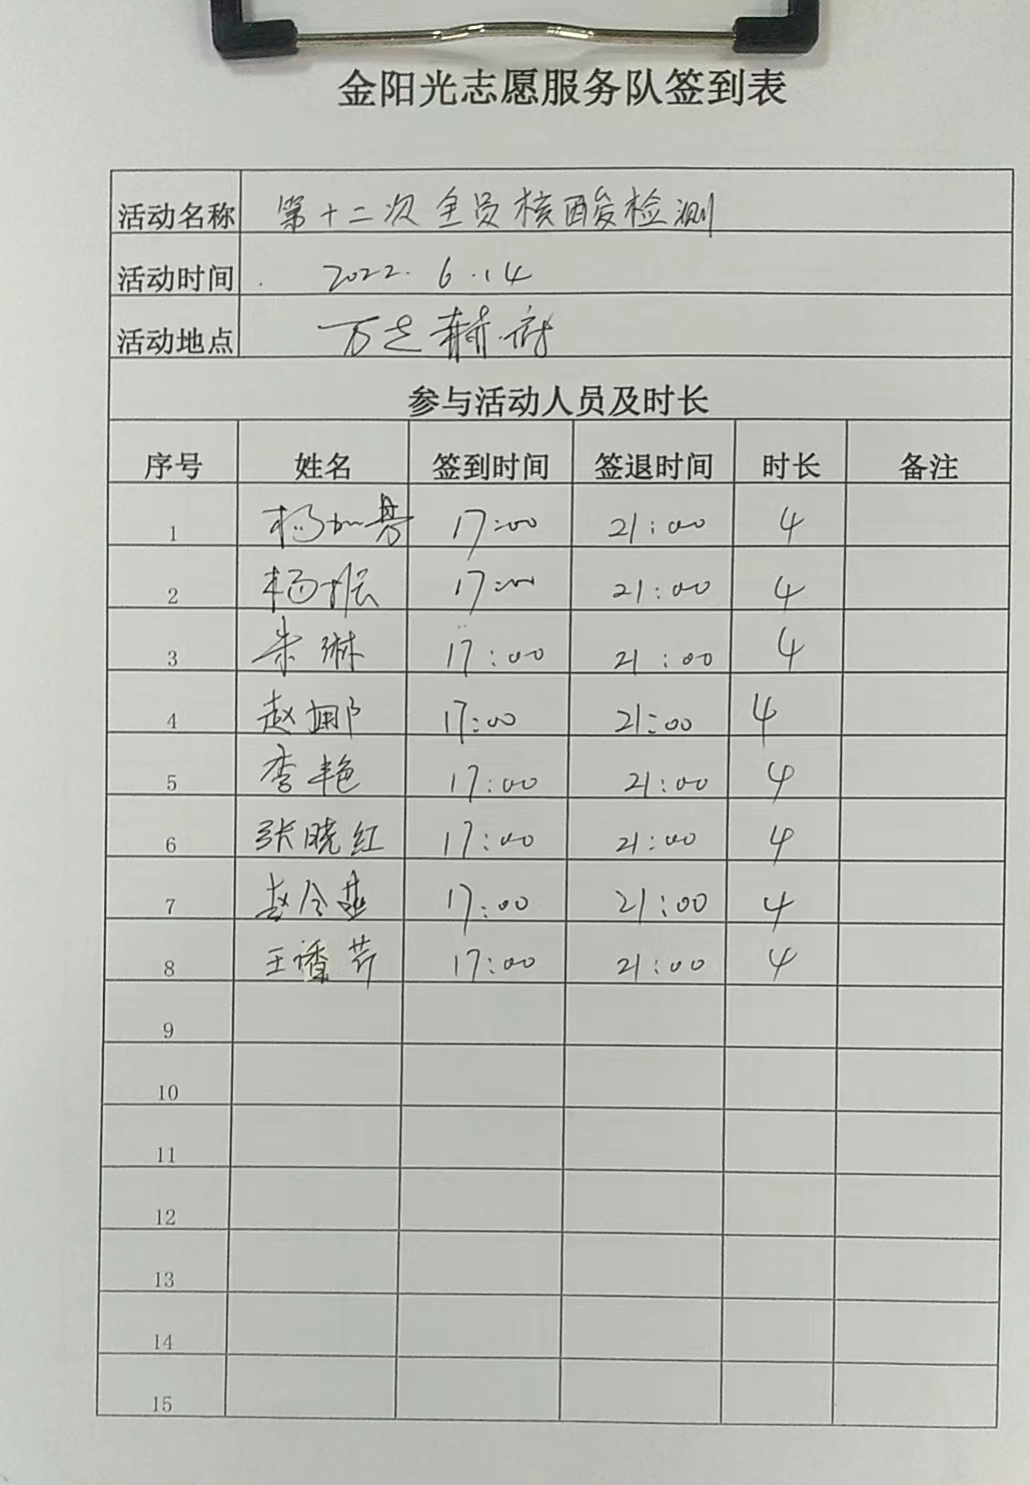 金阳光志愿服务队签到表
活动名称 第十二次全员核酸检测
活动时间 2022.6.14
活动地点 万芝赫府
参与活动人员及时长
序号 姓名 签到时间 签退时间 时长 备注
1 杨 17:00 21:00 4
2 杨振 17:00 21:00 4
3 朱琳 17:00 21:00 4
4 赵娜 17:00 21:00 4
5 李艳 17:00 21:00 4
6 张晓红 17:00 21:00 4
7 赵令燕 17:00 21:00 4
8 王香芹 17:00 21:00 4
9
10
11
12
13
14
15